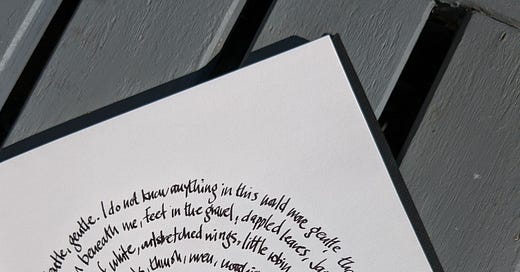 gentle. I do not know anything in this world more gentle
beneath me, feet in the gravel, dappled leaves,
white, outstretched wings, little robin
thrush, wren,